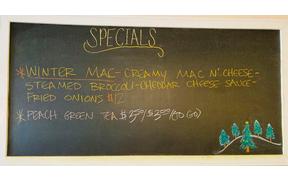 SPECIALS
* WINTER MAC - CREAMY MAC N' CHEESE -
STEAMED BROCCOLI - CHEDDAR CHEESE SAUCE -
FRIED ONIONS $12
* PEACH GREEN TEA $2.50/$3.00 (TO GO)